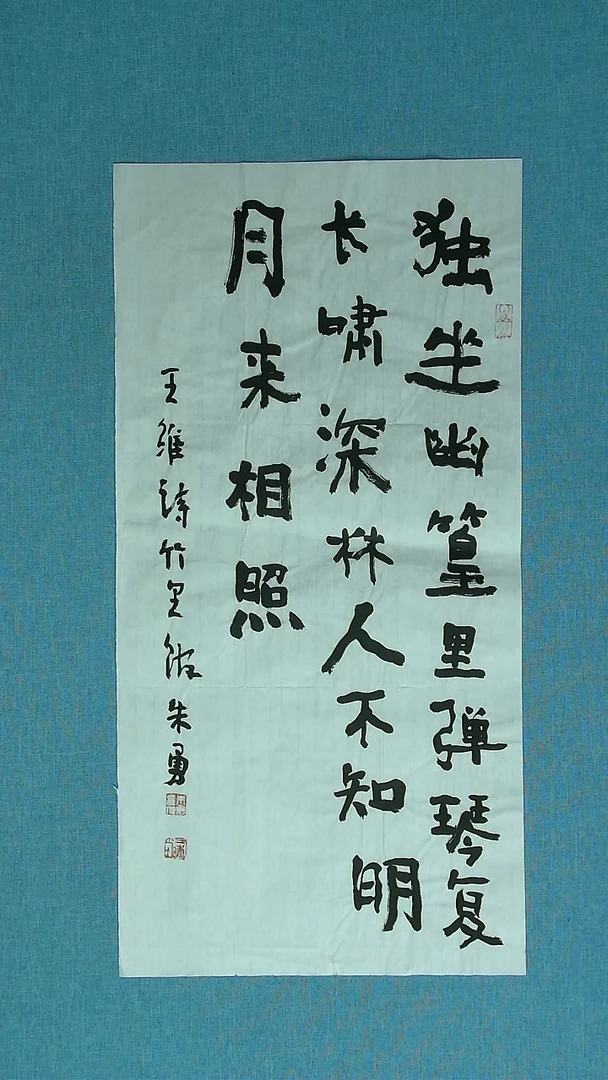 独坐幽篁里弹琴复
长啸深林人不知明
月来相照
王維诗竹里馆朱勇